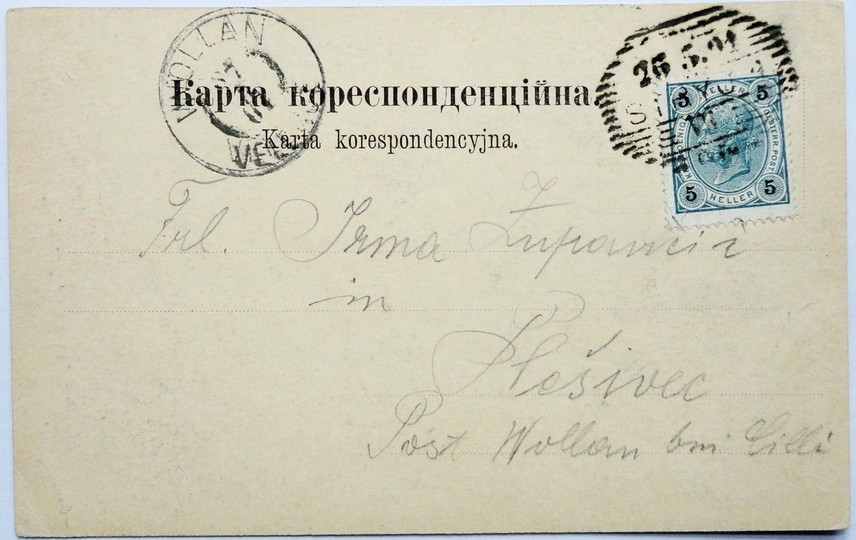 WOLLAN
25.5.01
Карта кореспонденційна.
Karta korespondencyjna.
5 HELLER 5
5 HELLER 5
Frl. Irma Županciz
in
Plešivec
Post Wollan bei Cilli